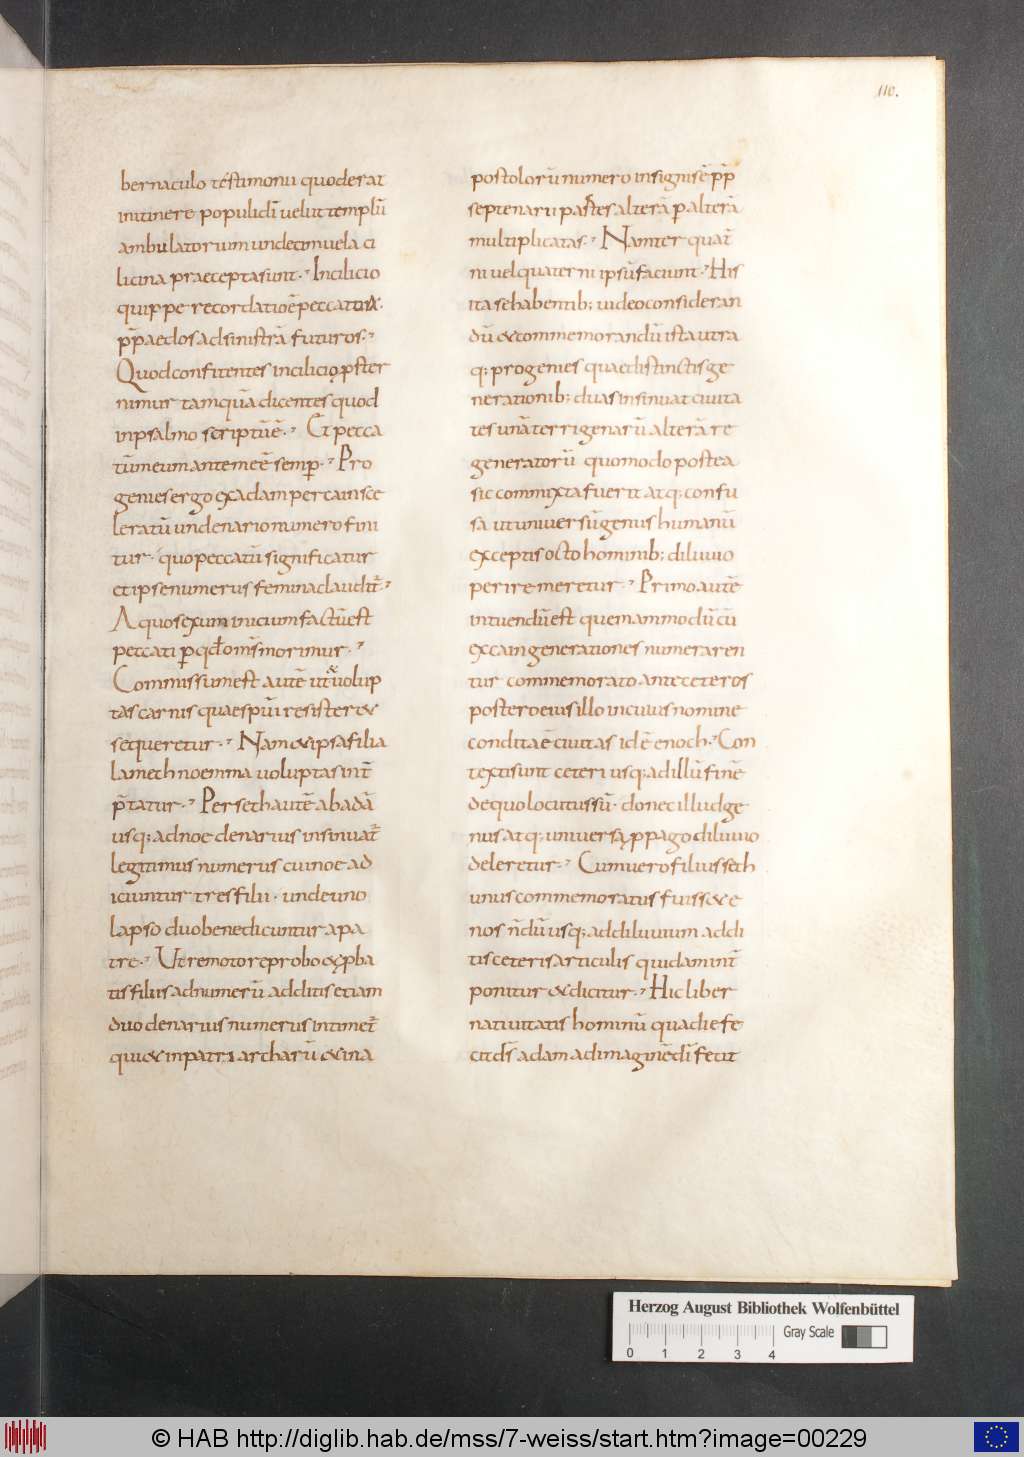 110.
bernaculo testimonii quod erat
initinere populi dī uelut templū
ambulatorium undecim uela ci
licina praecepta sunt. Incilicio
quippe recordatio ē peccatorū.
p̄p aedos ad sinistrā futuros.
Quod confitentes incilicio pster
nimur tamquā dicentes quod
inpsalmo scriptū ē. Et pecca
tū meum ante me ē semp. Pro
genies ergo ex adam per cain sce
leratū undenario numero fini
tur. quo peccatū significatur
et ipse numerus femina claudit̄.
A quo sexum initium factū est
peccati p qd oms morimur.
Commissum est autē ut & uolup
tas carnis quae spui resister&
sequeretur. Nam & ipsa filia
lamech noemma uoluptas int̄
p̄tatur. Per seth autē ab adā
usq; ad noe denarius insinuat̄
legitimus numerus cui noe ad
iciuntur tres filii. unde uno
lapso duo benedicuntur a pa
tre. Ut remoto reprobo & pba
tis filiis ad numerū additis etiam
duodenarius numerus intimet̄
qui & inpatriarcharū & in a
postolorū numero insignis ē p̄p
septenarii partes alterā p alterā
multiplicatas. Nam ter quat̄
ni uel quater ni ipsū faciunt. His
ita se habentib; uideo consideran
dū & commemorandū ista utra
q; progenies quae distinctis ge
nerationib; duas insinuat ciuita
tes unā terrigenarū alterā re
generatorū quomodo postea
sic commixta fuerit atq; confu
sa ut uniuersū genus humanū
exceptis octo hominib; diluuio
perire meretur. Primo autē
intuendū est quemammodū cū
ex cain generationes numeraren
tur commemorato ante ceteros
postero eius illo incuius nomine
condita ē ciuitas id ē enoch. Con
texti sunt ceteri usq; ad illū finē
de quo locutus sū. donec illud ge
nus atq; uniuersa ppago diluuio
deleretur. Cum uero filius seth
unus commemoratus fuiss& e
nos n̄dū usq; ad diluuium addi
tis ceteris articulis quidam int̄
ponitur & dicitur. Hic liber
natiuitatis hominū qua die fe
cit ds̄ adam ad imaginē dī fecit
Herzog August Bibliothek Wolfenbüttel
Gray Scale
0 1 2 3 4
© HAB http://diglib.hab.de/mss/7-weiss/start.htm?image=00229